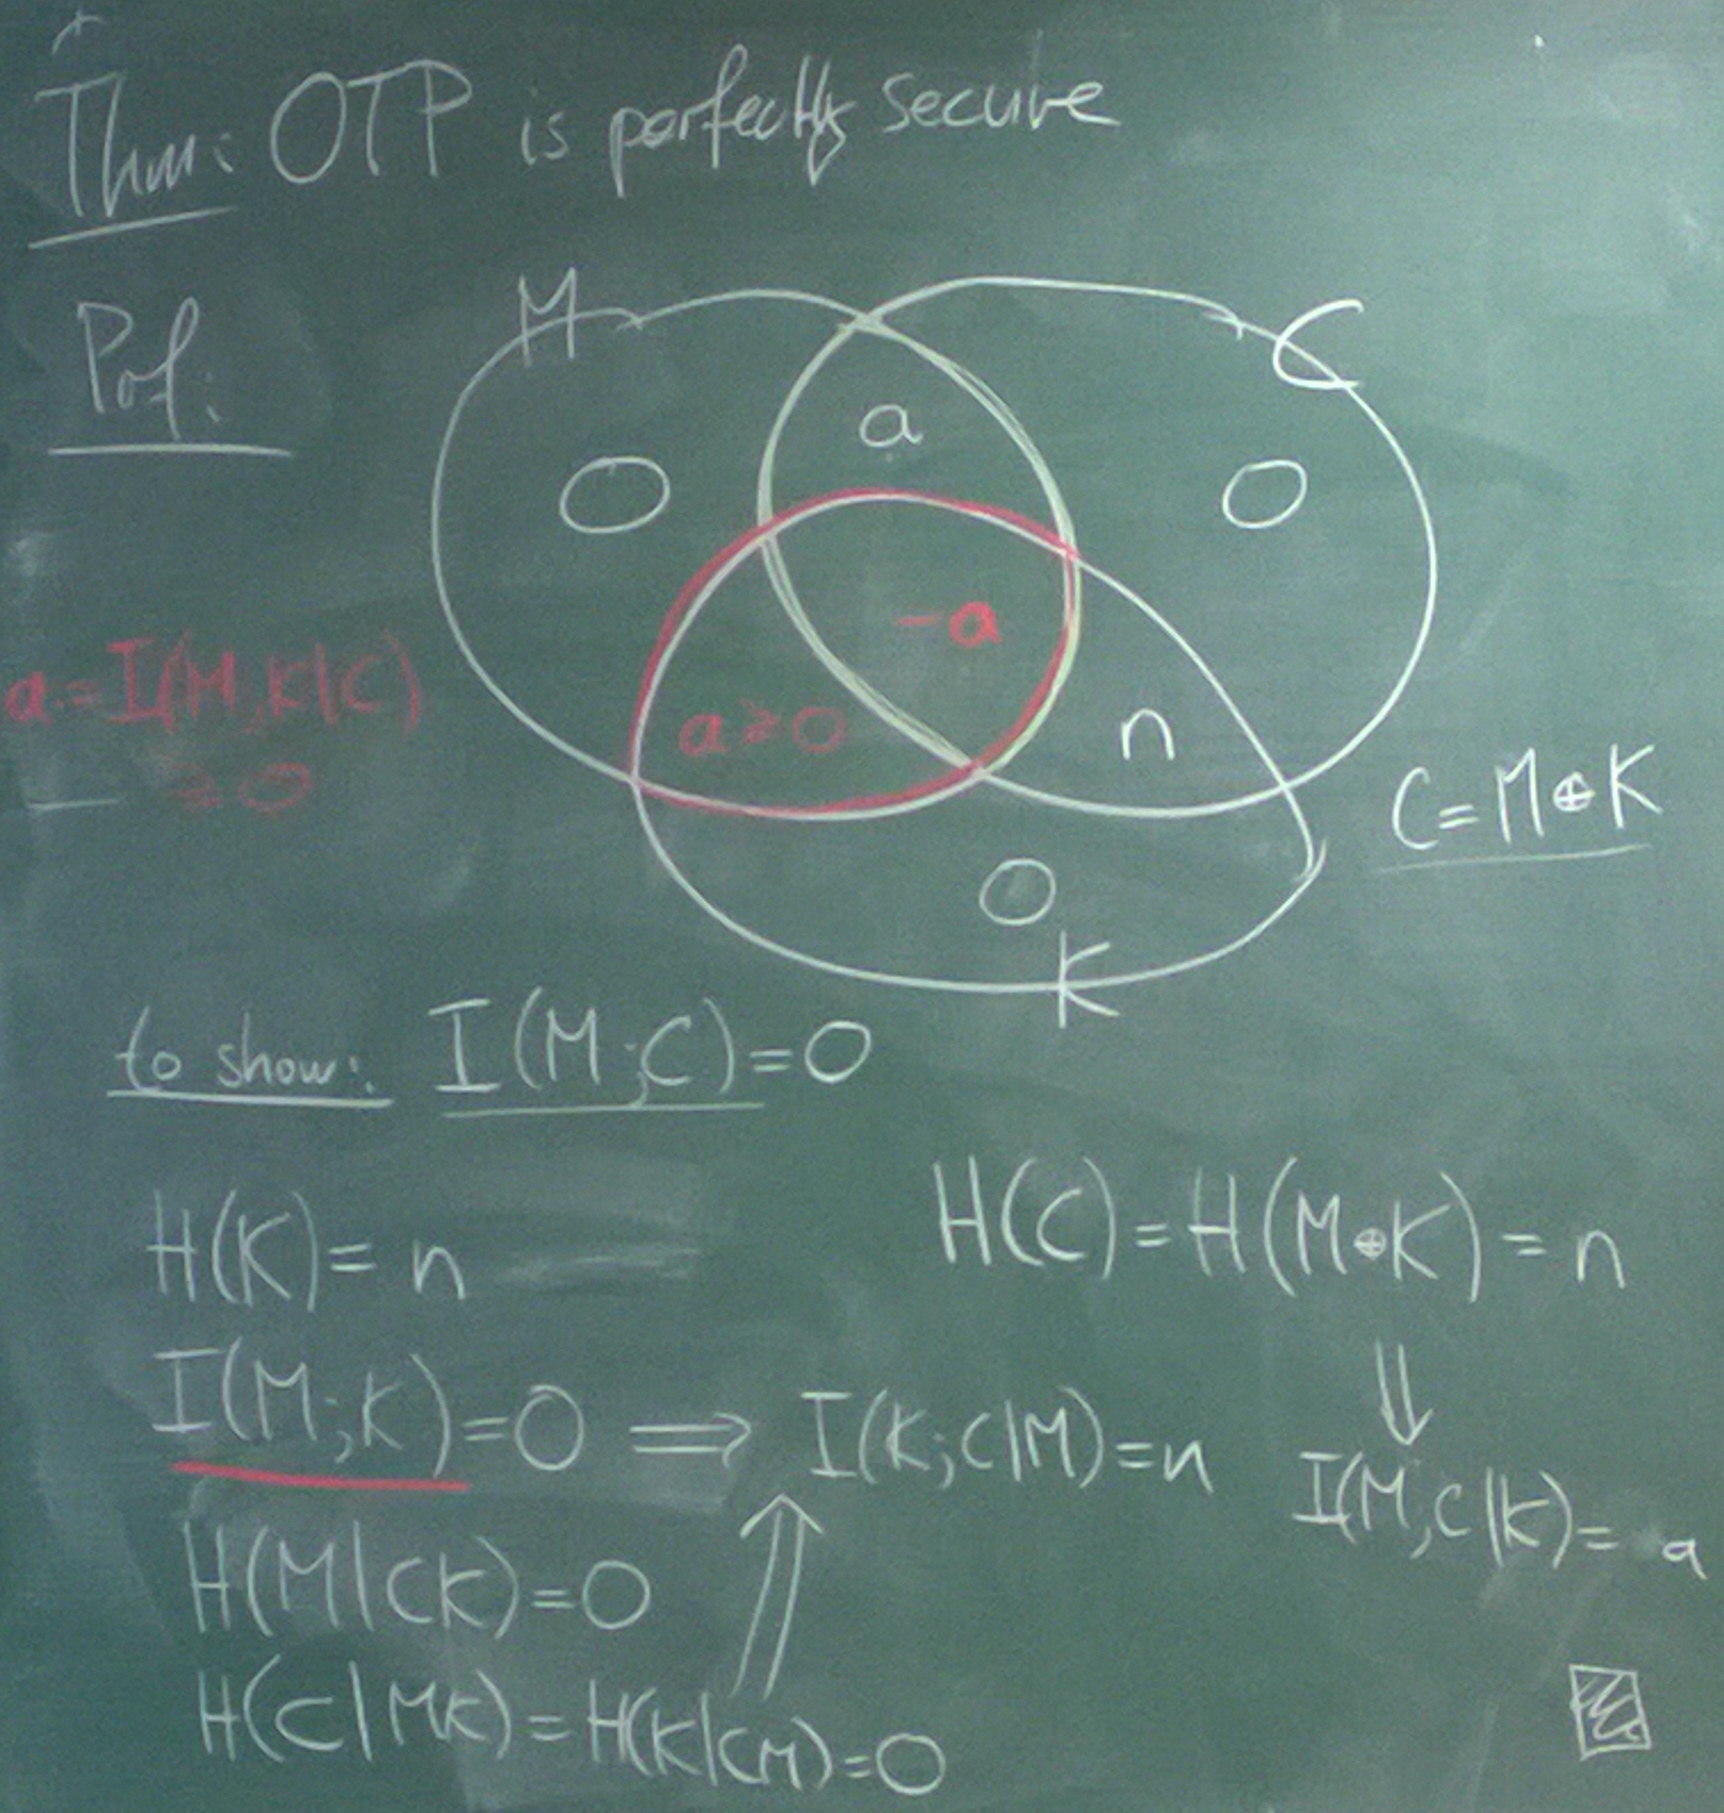 Thm: OTP is perfectly secure
Prf:
M
C
a
O
O
-a
a:=I(M;K|C)
≥0
a≥0
n
C=M⊕K
O
K
to show: I(M;C)=0
H(K)=n
H(C)=H(M⊕K)=n
⇓
I(M;K)=0 ⇒ I(K;C|M)=n
I(M;C|K)=a
⇑
H(M|CK)=0
H(C|MK)=H(K|CM)=0